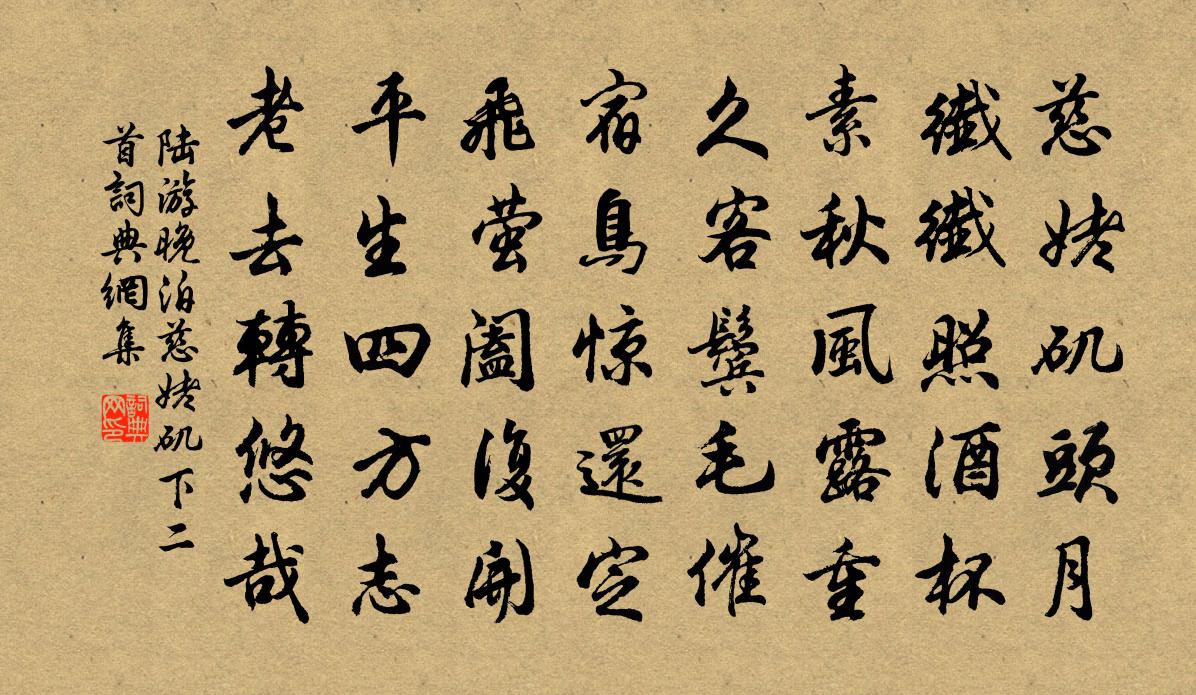 慈姥矶頭月
纖纖照酒杯
素秋風露重
久客鬓毛催
宿鳥惊還定
飛萤阖復開
平生四方志
老去轉悠哉
陆游晚泊慈姥矶下二
首詞典網集
詞典网印